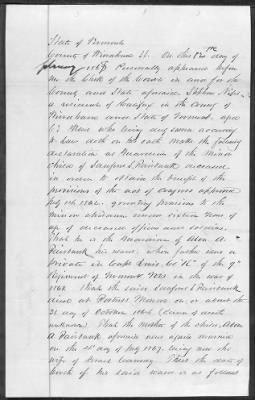 State of Vermont
County of Windham SS. On this 12th day of
January 1867 Personally appeared before
me the Clerk of the Court in and for the
County and State aforesaid Stephen Niles
a resident of Halifax in the County of
Windham and State of Vermont, aged
years who being duly sworn according
to law doth on oath make the following
declaration as Guardian of the Minor
Child of Sanford Fairbank deceased
in order to obtain the benefit of the
provisions of the act of Congress approved
July 14th 1862. granting pensions to the
minor children under sixteen years of
age of deceased officers and soldiers.
That he is the Guardian of
Fairbank his ward, whose father was a
Private in Capt. Co. "K" of the 9th
Regiment of Vermont Vols in the war of
1861. That the said Sanford Fairbank
died at Fortress Monroe on or about the
31 day of October 1864 (cause of death
unknown). That the mother of the child,
Fairbank aforesaid was again married
on the day of July 1867, being now the
wife of Thus the date of
birth of his said ward is as follows